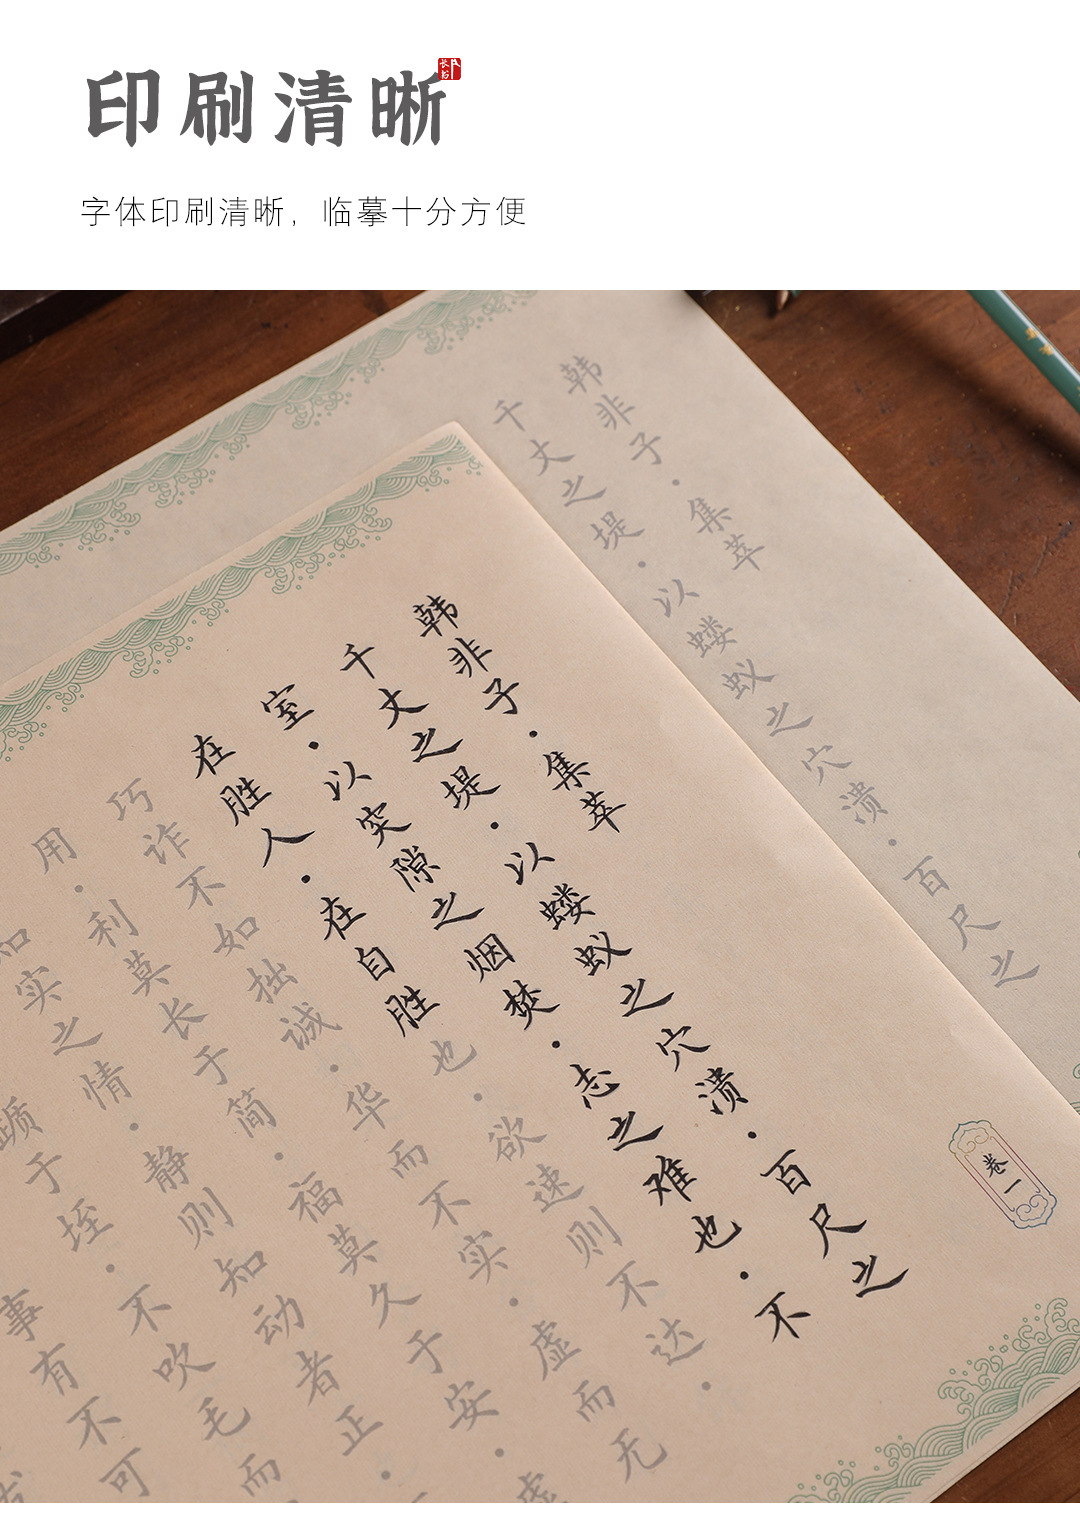 印刷清晰
字体印刷清晰，临摹十分方便
韩非子·集萃
千丈之堤·以蝼蚁之穴溃·百尺之
韩非子·集萃
千丈之堤·以蝼蚁之穴溃·百尺之
室·以突隙之烟焚·志之难也·不
在胜人·在自胜也·欲速则不达·
巧诈不如拙诚·华而不实·虚而无
用·利莫长于简·福莫久于安·虚
知实之情·静则知动者正·
踬于垤·不吹毛而
事有不可
卷一